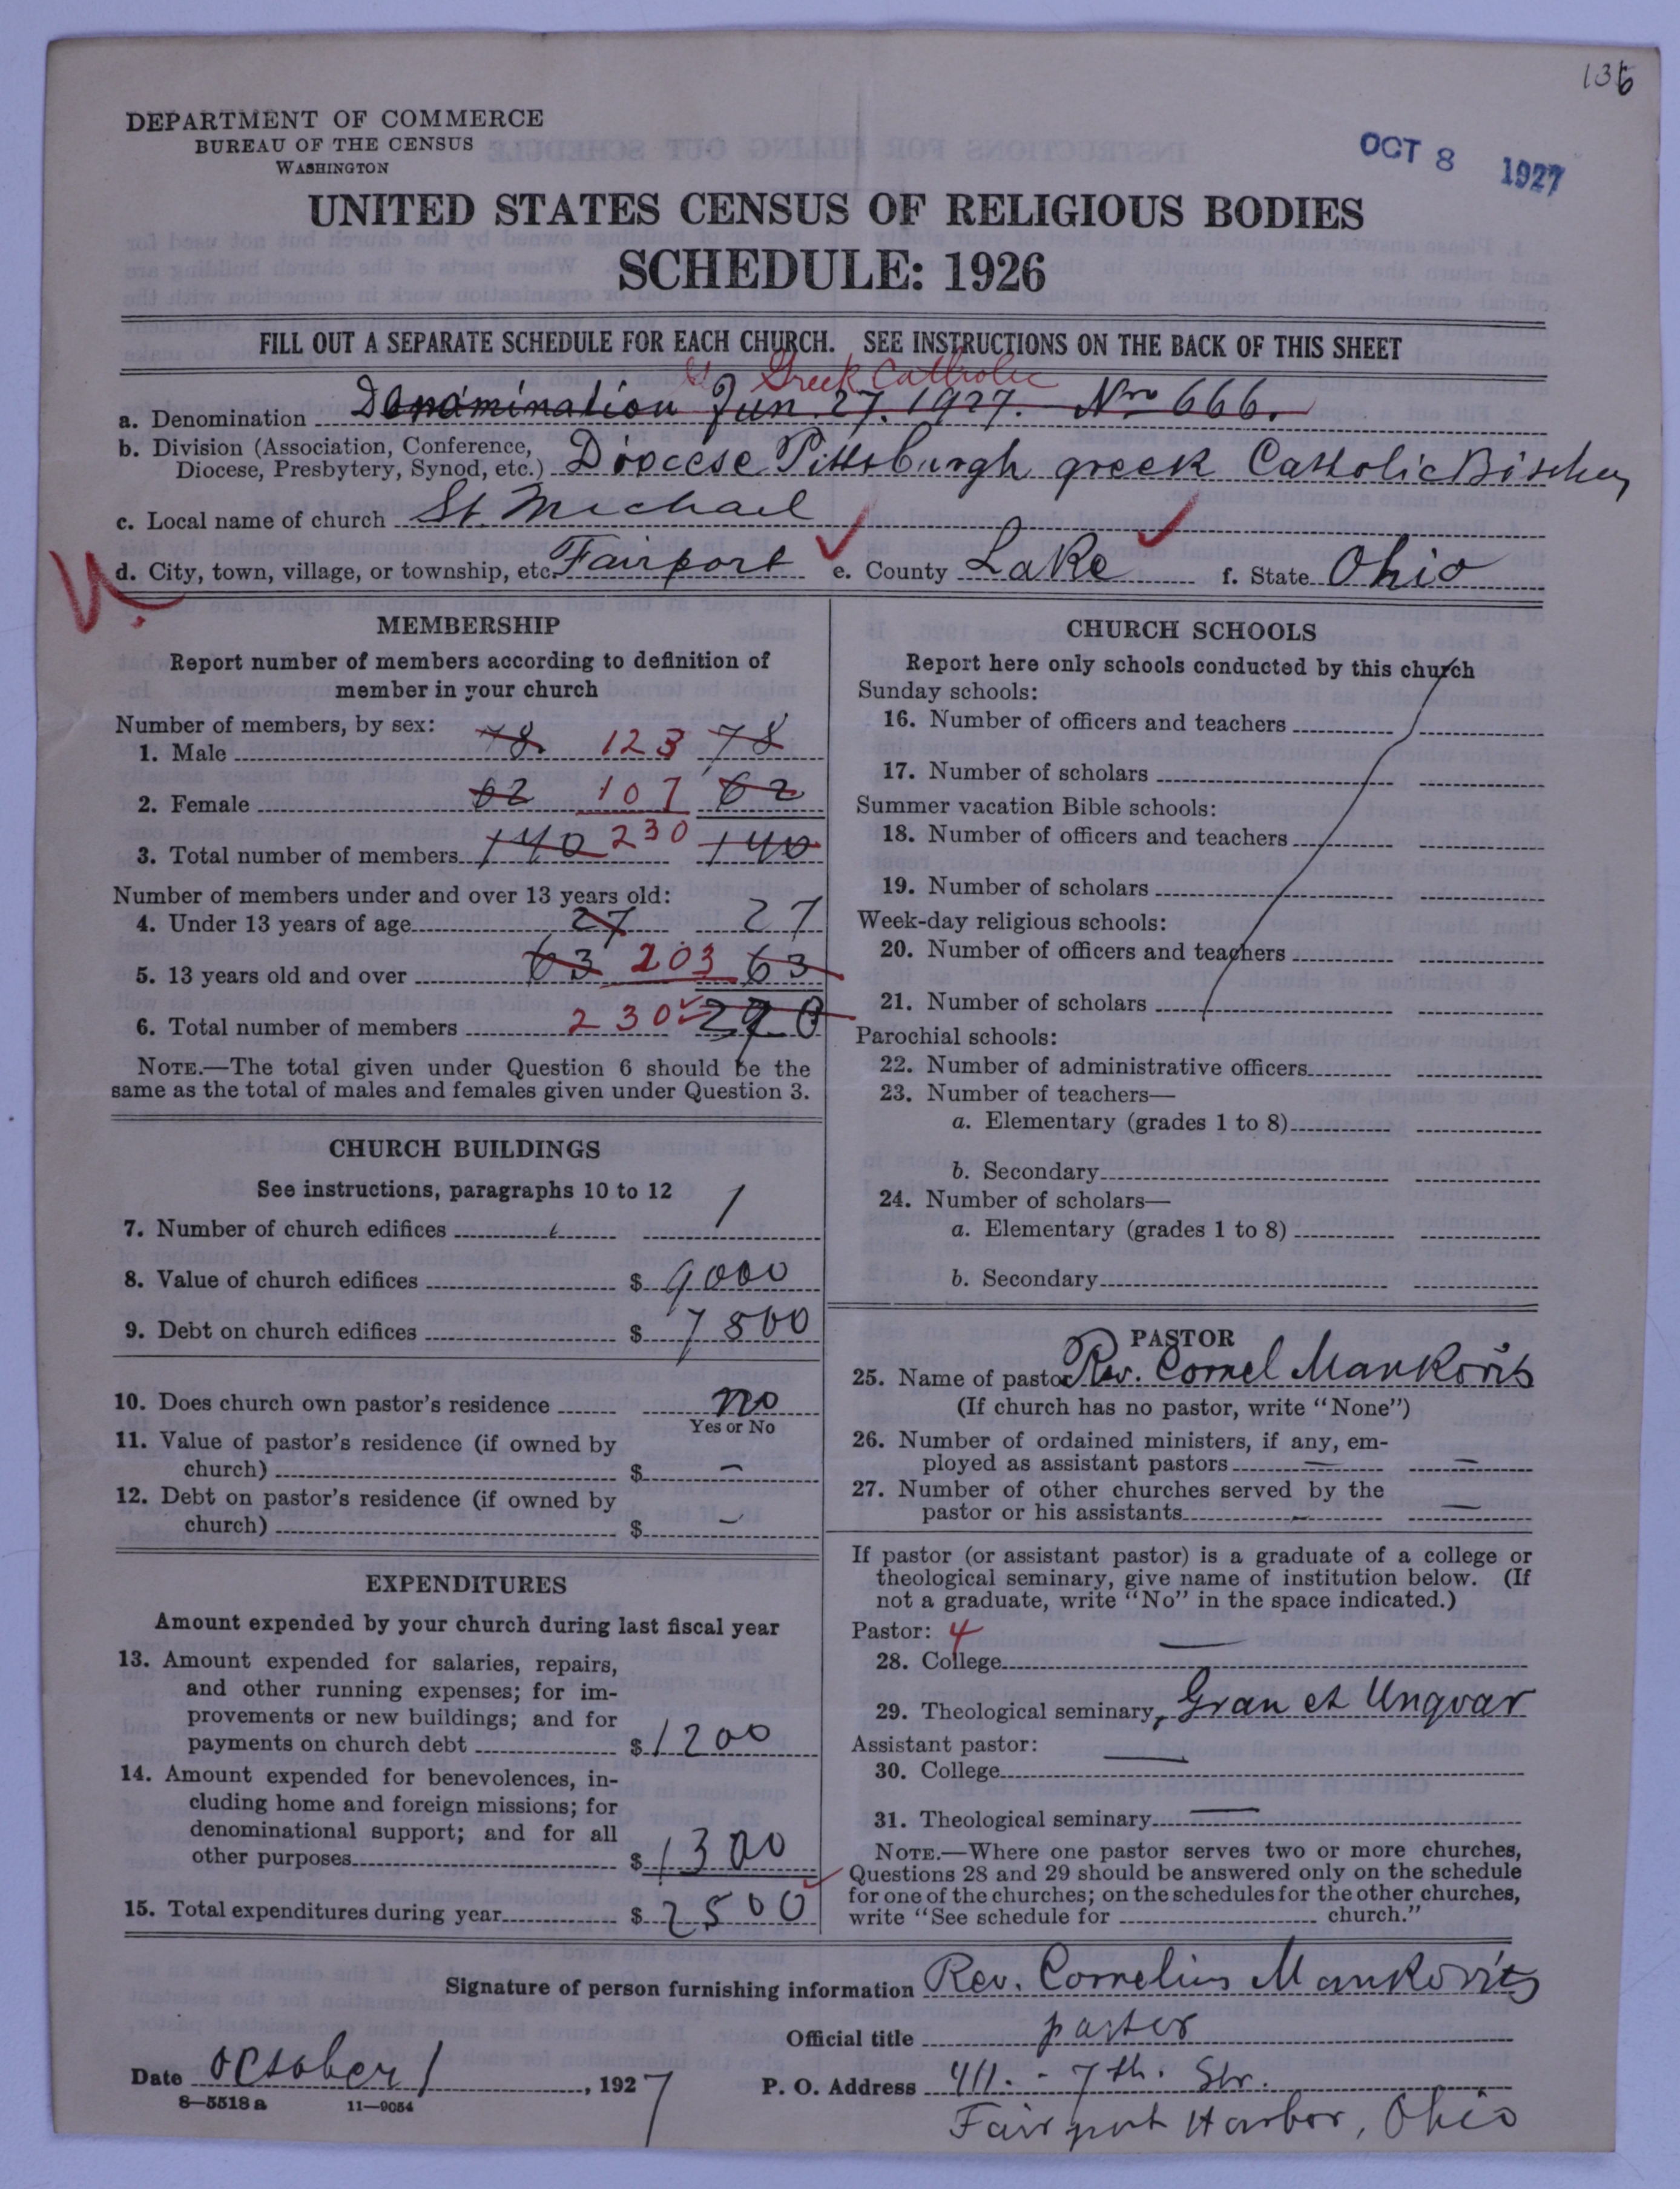 136
DEPARTMENT OF COMMERCE
BUREAU OF THE CENSUS
WASHINGTON
OCT 8 1927
UNITED STATES CENSUS OF RELIGIOUS BODIES
SCHEDULE: 1926
FILL OUT A SEPARATE SCHEDULE FOR EACH CHURCH. SEE INSTRUCTIONS ON THE BACK OF THIS SHEET
Greek Catholic
a. Denomination Denomination Jun. 27. 1927. Nro 666.
b. Division (Association, Conference,
Diocese, Presbytery, Synod, etc.) Diocese Pittsburgh greek Catholic
c. Local name of church St. Michael
d. City, town, village, or township, etc. Fairport e. County Lake f. State Ohio
MEMBERSHIP
Report number of members according to definition of
member in your church
Number of members, by sex:
1. Male 78. 123 78
2. Female 62 107 62
3. Total number of members 140 230 140
Number of members under and over 13 years old:
4. Under 13 years of age 27 27
5. 13 years old and over 63 203 63
6. Total number of members 230
NOTE.—The total given under Question 6 should be the
same as the total of males and females given under Question 3.
CHURCH BUILDINGS
See instructions, paragraphs 10 to 12
7. Number of church edifices 1
8. Value of church edifices $ 9000
9. Debt on church edifices $ 7800
10. Does church own pastor's residence no
Yes or No
11. Value of pastor's residence (if owned by
church) $ —
12. Debt on pastor's residence (if owned by
church) $ —
EXPENDITURES
Amount expended by your church during last fiscal year
13. Amount expended for salaries, repairs,
and other running expenses; for im-
provements or new buildings; and for
payments on church debt $ 1200
14. Amount expended for benevolences, in-
cluding home and foreign missions; for
denominational support; and for all
other purposes $ 1300
15. Total expenditures during year $ 2500
CHURCH SCHOOLS
Report here only schools conducted by this church
Sunday schools:
16. Number of officers and teachers
17. Number of scholars
Summer vacation Bible schools:
18. Number of officers and teachers
19. Number of scholars
Week-day religious schools:
20. Number of officers and teachers
21. Number of scholars
Parochial schools:
22. Number of administrative officers
23. Number of teachers—
a. Elementary (grades 1 to 8)
b. Secondary
24. Number of scholars—
a. Elementary (grades 1 to 8)
b. Secondary
PASTOR
25. Name of pastor Rev. Cornel Mankovits
(If church has no pastor, write "None")
26. Number of ordained ministers, if any, em-
ployed as assistant pastors — —
27. Number of other churches served by the
pastor or his assistants — —
If pastor (or assistant pastor) is a graduate of a college or
theological seminary, give name of institution below. (If
not a graduate, write "No" in the space indicated.)
Pastor: 4
28. College —
29. Theological seminary, Gran et Ungvar
Assistant pastor:
30. College —
31. Theological seminary —
NOTE.—Where one pastor serves two or more churches,
Questions 28 and 29 should be answered only on the schedule
for one of the churches; on the schedules for the other churches,
write "See schedule for church."
Signature of person furnishing information Rev. Cornelius Mankovits
Official title pastor
Date October 1, 1927 P. O. Address 411. - 7th. Str.
Fairport Harbor, Ohio
8—5518a 11—9054